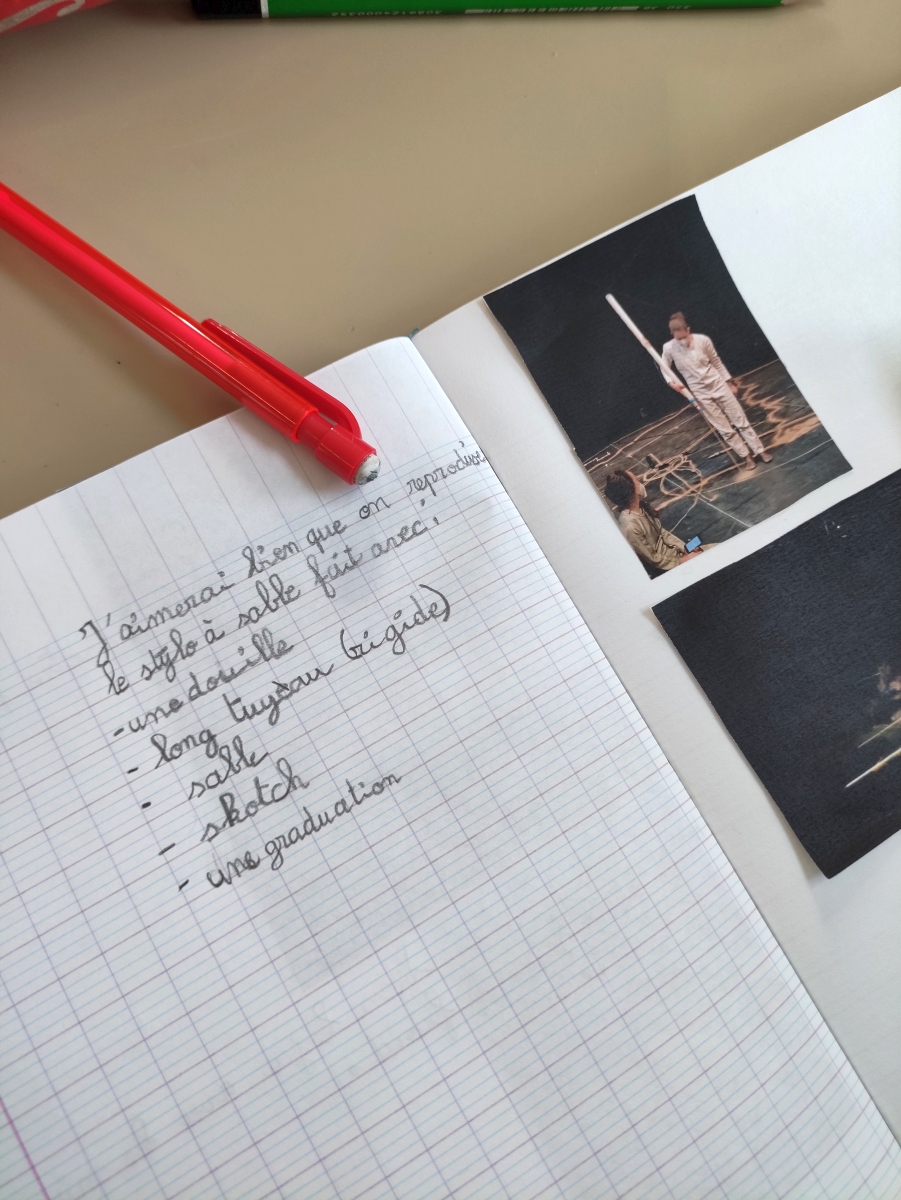 J'aimerai bien que on reproduise
le stylo à sable fait avec :
- une douille
- long tuyèau (rigide)
- sable
- skotch
- une graduation